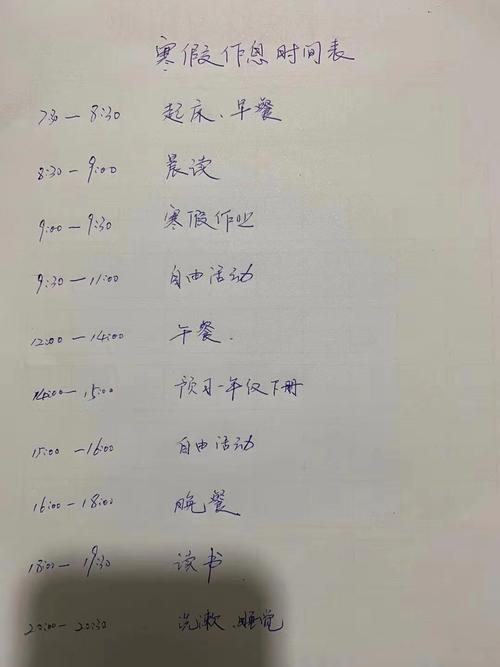 寒假作息时间表
7:30－8:30 起床、早餐
8:30－9:00 晨读
9:00－9:30 寒假作业
9:30－11:00 自由活动
12:00－14:00 午餐.
14:00－15:00 预习一年级下册
15:00－16:00 自由活动
16:00－18:00 晚餐
18:00－19:30 读书
20:00－20:30 洗漱、睡觉